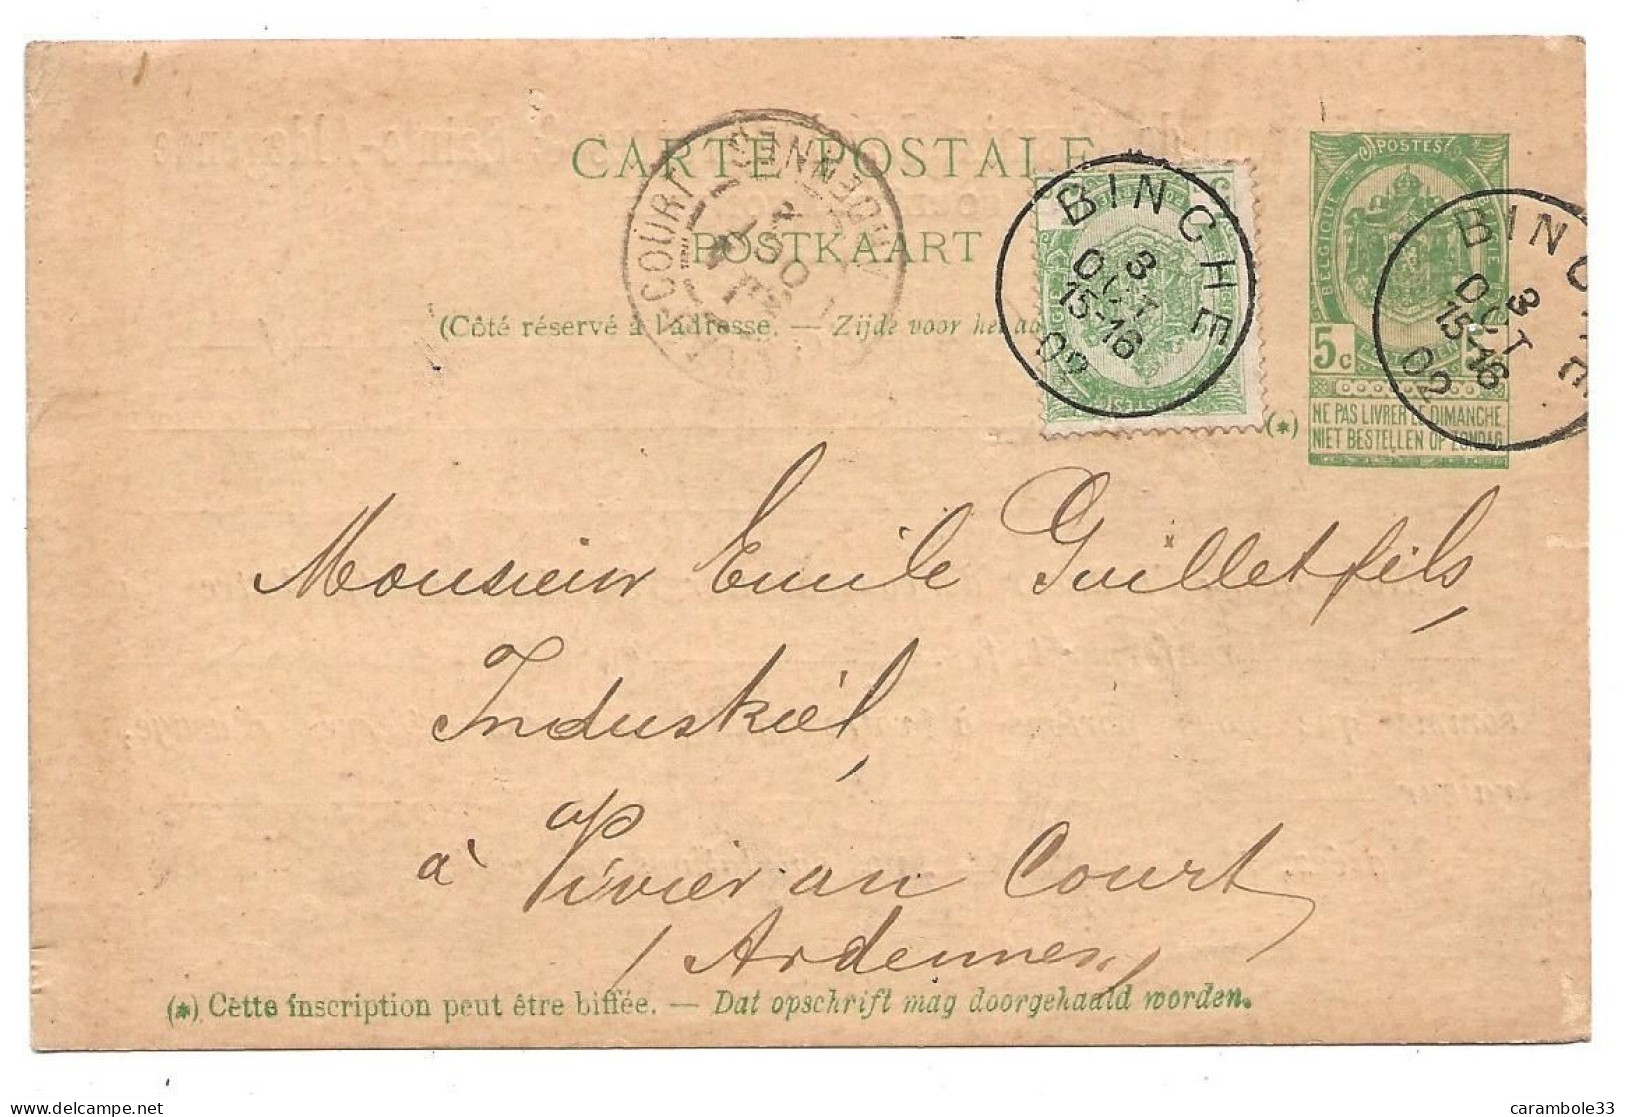 CARTE POSTALE
POSTKAART
(Côté réservé à l'adresse. — Zijde voor het ad
POSTES
BELGIQUE
5c
NE PAS LIVRER LE DIMANCHE
NIET BESTELLEN OP ZONDAG
(*)
BINCHE
3
OCT
15-16
02
BINCHE
3
OCT
15-16
02
ARDENNES
Monsieur Emile Guillet fils,
Industriel,
à Vivier au Court
(Ardennes)
(*) Cette inscription peut être biffée. — Dat opschrift mag doorgehaald worden.
delcampe.net
carambole33